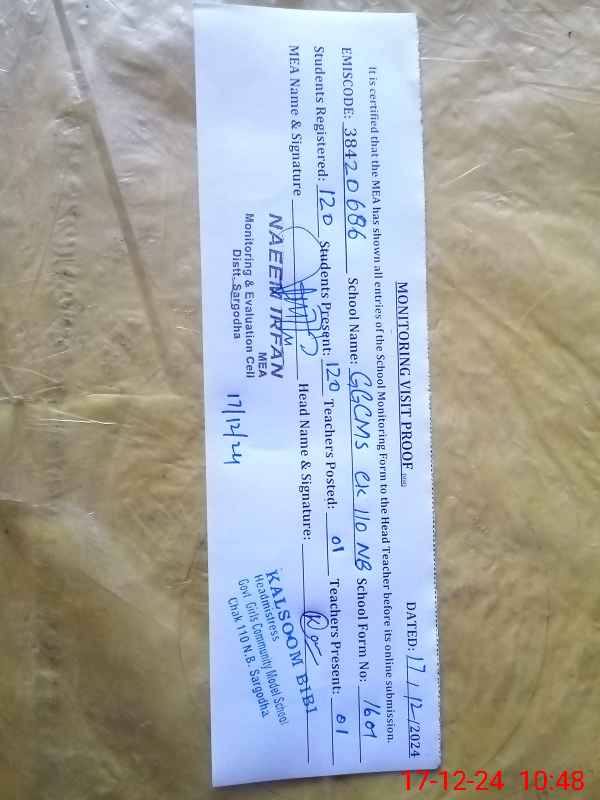 MONITORING VISIT PROOF
DATED: 17/12/2024
It is certified that the MEA has shown all entries of the School Monitoring Form to the Head Teacher before its online submission.
EMISCODE: 38420686 School Name: GGCMS CK 110 NB School Form No: 1601
Students Registered: 120 Students Present: 120 Teachers Posted: 01 Teachers Present: 01
MEA Name & Signature Head Name & Signature:
NAEEM IRFAN
MEA
Monitoring & Evaluation Cell
Distt. Sargodha
17/12/24
KALSOOM BIBI
Headmistress
Govt Girls Community Model School
Chak 110 N.B. Sargodha
17-12-24 10:48